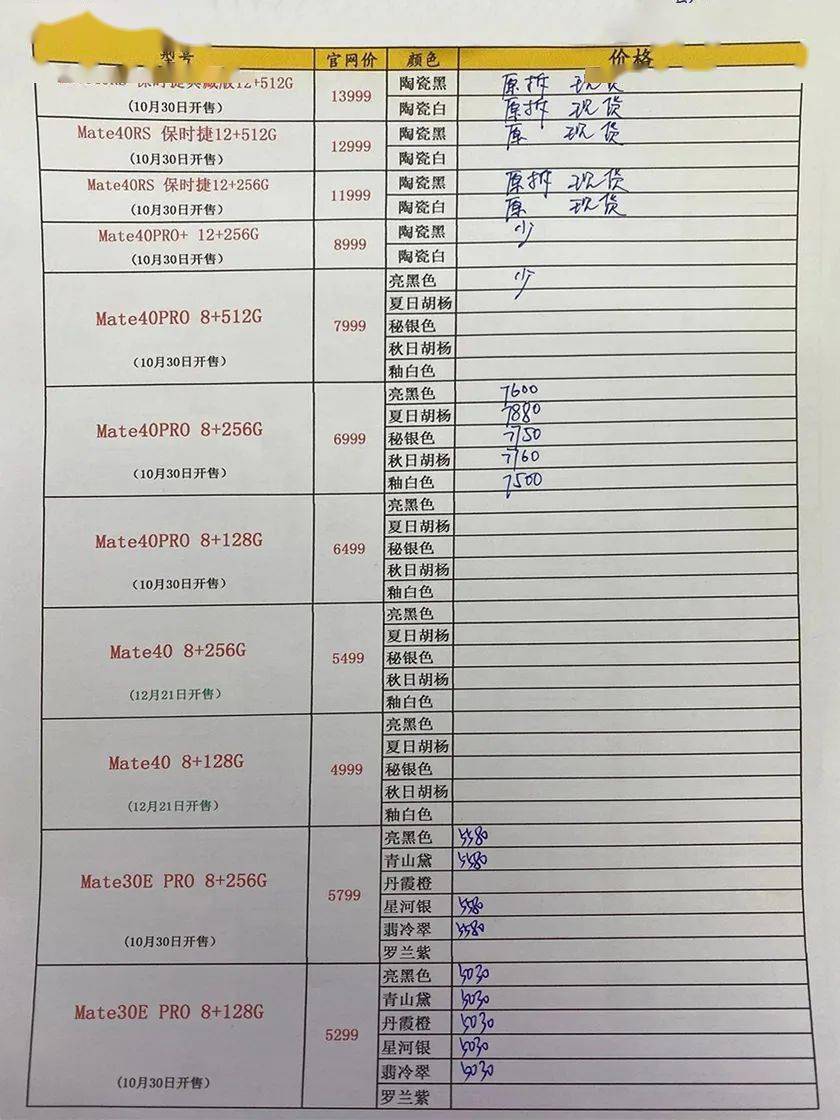 型号 官网价 颜色 价格
保时捷典藏版12+512G 13999 陶瓷黑 原拆 现货
(10月30日开售) 陶瓷白 原拆 现货
Mate40RS 保时捷12+512G 12999 陶瓷黑 原 现货
(10月30日开售) 陶瓷白
Mate40RS 保时捷12+256G 11999 陶瓷黑 原拆 现货
(10月30日开售) 陶瓷白 原 现货
Mate40PRO+ 12+256G 8999 陶瓷黑 少
(10月30日开售) 陶瓷白
亮黑色 少
夏日胡杨
Mate40PRO 8+512G 7999 秘银色
秋日胡杨
(10月30日开售) 釉白色
亮黑色 7600
夏日胡杨 7880
Mate40PRO 8+256G 6999 秘银色 7750
秋日胡杨 7760
(10月30日开售) 釉白色 7500
亮黑色
夏日胡杨
Mate40PRO 8+128G 6499 秘银色
秋日胡杨
(10月30日开售) 釉白色
亮黑色
夏日胡杨
Mate40 8+256G 5499 秘银色
秋日胡杨
(12月21日开售) 釉白色
亮黑色
夏日胡杨
Mate40 8+128G 4999 秘银色
秋日胡杨
(12月21日开售) 釉白色
亮黑色 5580
青山黛 5580
Mate30E PRO 8+256G 5799 丹霞橙
星河银 5580
(10月30日开售) 翡冷翠 5580
罗兰紫
亮黑色 5030
青山黛 5030
Mate30E PRO 8+128G 5299 丹霞橙 5030
星河银 5030
(10月30日开售) 翡冷翠 5030
罗兰紫